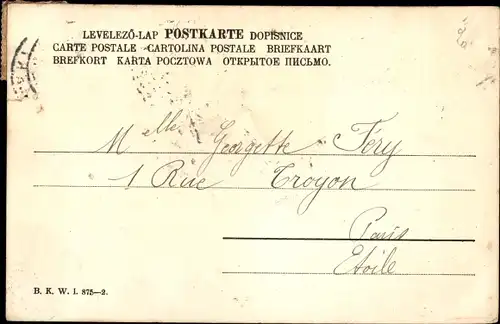 LEVELEZŐ-LAP POSTKARTE DOPISNICE
CARTE POSTALE CARTOLINA POSTALE BRIEFKAART
BREFKORT KARTA POCZTOWA ОТКРЫТОЕ ПИСЬМО.
Melle Georgette Féry
1 Rue Troyon
Paris
Etoile
B. K. W. I. 875—2.